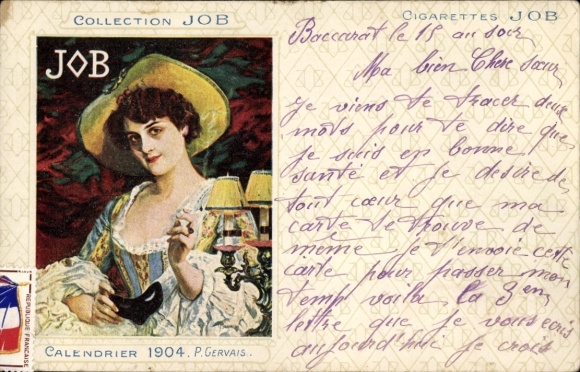 COLLECTION JOB
CIGARETTES JOB
JOB
Baccarat le 15 au soir
Ma bien Chere sœur
Je viens te tracer deux
mots pour te dire que
je suis en bonne
santé et je desire de
tout cœur que ma
carte te trouve de
meme je t'envoie cette
carte pour passer mon
temp voila la 3 em
lettre que je vous ecris
aujourd'hui je crois
REPUBLIQUE FRANCAISE
CALENDRIER 1904. P. GERVAIS..